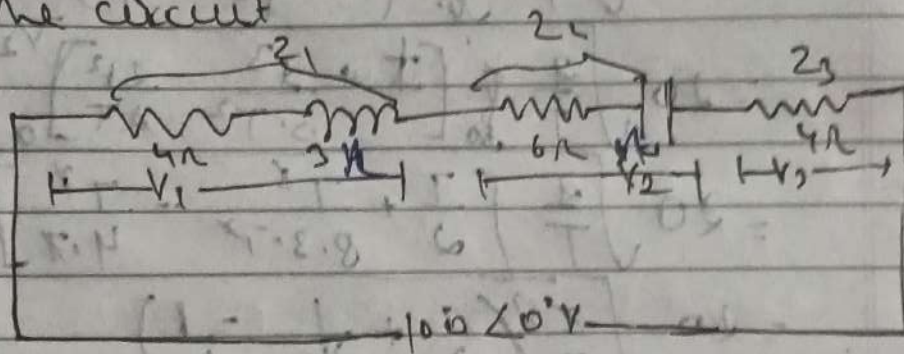 he circuit
Z1 Z2 Z3
4Ω 3Ω 6Ω 4Ω
V1 V2 V3
100∠0°V